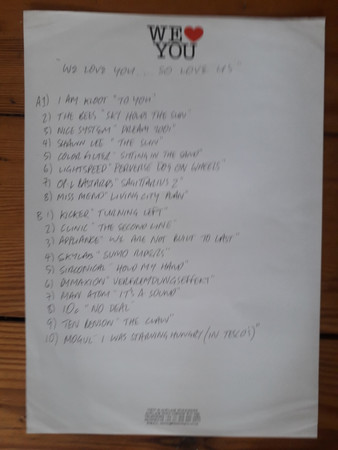 WE ❤
YOU
"WE LOVE YOU... SO LOVE US"
A1) I AM KLOOT "TO YOU"
2) THE REGS "SKY HOLDS THE SUN"
3) NICE SYSTEM "DREAM
4) SHAWN LEE "THE SUN"
5) COLOR FILTER "SITTING IN THE SAND"
6) LIGHTSPEED "PERVERSE DAY ON WHEELS"
7) BASTARDS "SAGITTARIUS 2"
8) MISS MEND "LIVING CITY PLAN"
B1) KICKER "TURNING LEFT"
2) CLINIC "THE SECOND LINE"
3) APPLIANCE "WE ARE NOT BUILT TO LAST"
4) SKYLAB "SUMO
5) SIRCONICAL "HOLD MY HAND"
6) DYMAXION "VERFREMDUNGSEFFEKT"
7) MAN ATOM "IT'S A SOUND"
8) "NO DEAL"
9) TEN BENSON "THE CLAW"
10) MOGUL "I WAS STARVING HUNGRY (IN TESCO'S)"